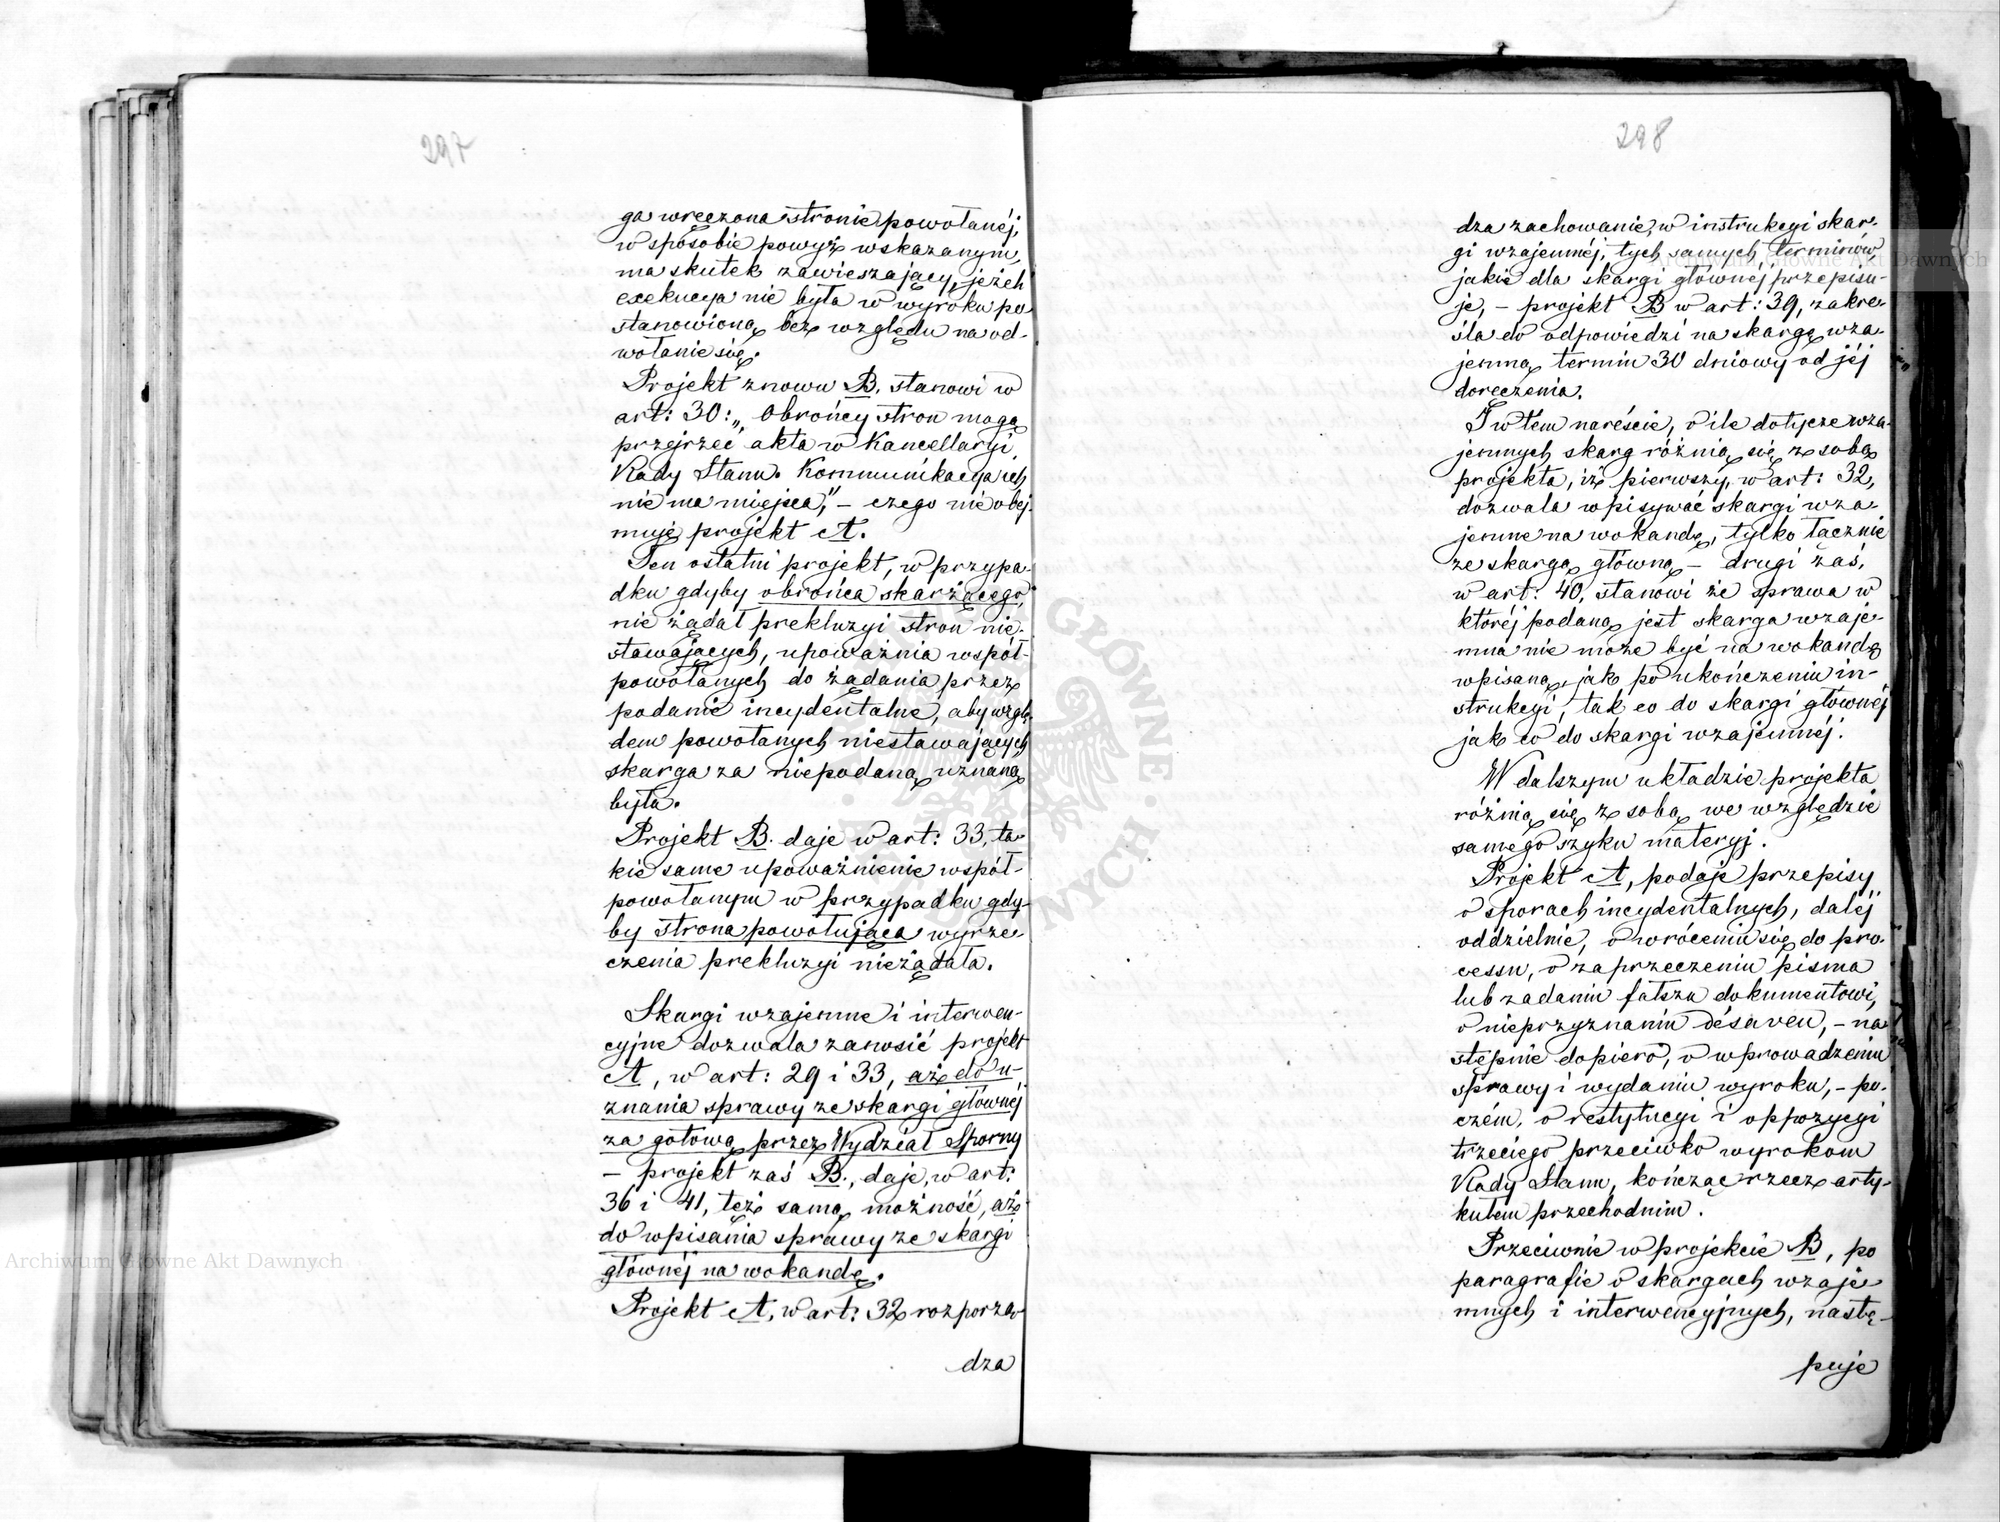 297
ga wręczona stronie powołanéj,
w sposobie powyż wskazanym,
ma skutek zawieszający, jeżeli
exekucya nie była w wyroku po
stanowioną bez względu na od-
wołanie się.
Projekt znowu B. stanowi w
art: 30: „Obrońcy stron mogą
przejrzeć akta w Kancellaryi
Rady Stanu. Kommunikacya ich
nie ma miejsca," – czego nie obej-
muje projekt A.
Ten ostatni projekt, w przypa-
dku gdyby obrońca skarżącego,
nie żądał prekluzyi stron nie-
stawających, upoważnia współ-
powołanych do żądania przez
podanie incydentalne, aby wzglę-
dem powołanych niestawających
skarga za niepodaną uznaną
była.
Projekt B. daje w art: 33, ta-
kie same upoważnienie współ-
powołanym w przypadku gdy-
by strona powołująca wyrze-
czenia prekluzyi nieżądała.
Skargi wzajemne i interwen-
cyjne dozwala zanosić projekt
A, w art: 29 i 33, aż do u-
znania sprawy ze skargi głównéj
za gotową przez Wydział Sporny
– projekt zaś B., daje, w art:
36 i 41, też samą możność, aż
do wpisania sprawy ze skargi
głównéj na wokandę.
Projekt A, w art: 32 rozporzą-
dza
298
dza zachowanie, w instrukcyi skar-
gi wzajemnéj, tych samych terminów,
jakie dla skargi głównéj przepisu-
je, – projekt B w art: 39, zakre-
śla do odpowiedzi na skargę wza-
jemną termin 30 dniowy od jéj
doręczenia.
I w tem nareście, o ile dotycze wza-
jemnych skarg różnią się z sobą
projekta, iż pierwszy, w art: 32,
dozwala wpisywać skargi wza-
jemne na wokandę, tylko łącznie
ze skargą główną – drugi zaś,
w art: 40, stanowi że sprawa w
któréj podaną jest skarga wzaje-
mna nie może być na wokandę
wpisaną, jak po ukończeniu in-
strukcyi, tak co do skargi głównéj
jak co do skargi wzajemnéj.
W dalszym układzie projekta
różnią się z sobą we względzie
samego szyku materyj.
Projekt A, podaje przepisy
o sporach incydentalnych, daléj
oddzielnie, o wróceniu się do pro-
cessu, o zaprzeczeniu pisma
lub zadaniu fałszu dokumentowi,
o nieprzyznaniu désaveu, – na-
stępnie dopiero, o wprowadzeniu
sprawy i wydaniu wyroku, – po-
czém, o restytucyi i oppozycyi
trzeciego przeciwko wyrokom
Rady Stanu, kończąc rzecz arty-
kułem przechodnim.
Przeciwnie w projekcie B, po
paragrafie o skargach wzaje-
mnych i interwencyjnych, nastę-
puje
Archiwum Główne Akt Dawnych
Archiwum Główne Akt Dawnych
GŁÓWNE